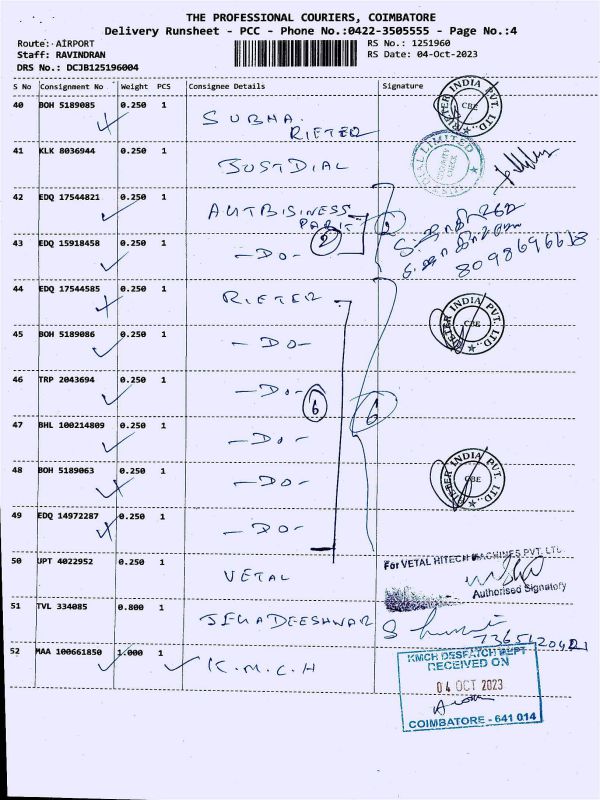 THE PROFESSIONAL COURIERS, COIMBATORE
Delivery Runsheet - PCC - Phone No.:0422-3505555 - Page No.:4
Route: AIRPORT
Staff: RAVINDRAN
DRS No.: DCJB125196004
RS No.: 1251960
RS Date: 04-Oct-2023
S No Consignment No Weight PCS Consignee Details Signature
40 BOH 5189085 0.250 1 SUBHA. RIETER
41 KLK 8036944 0.250 1 JUSTDIAL
42 EDQ 17544821 0.250 1
43 EDQ 15918458 0.250 1 -DO- 2
8098696618
44 EDQ 17544585 0.250 1 RIETER
45 BOH 5189086 0.250 1 -DO-
46 TRP 2043694 0.250 1 -DO- 6 6
47 BHL 100214809 0.250 1 -DO-
48 BOH 5189063 0.250 1 -DO-
49 EDQ 14972287 0.250 1 -DO-
50 UPT 4022952 0.250 1 VETAL
For VETAL HITECH MACHINES PVT. LTD
Authorised Signatory
51 TVL 334085 0.800 1
52 MAA 100661850 1.000 1 K.M.C.H
KMCH DESPATCH DEPT
RECEIVED ON
04 OCT 2023
COIMBATORE - 641 014
RIETER INDIA PVT. LTD.
CBE
RIETER INDIA PVT. LTD.
CBE
RIETER INDIA PVT. LTD.
CBE
SECURITY CHECK